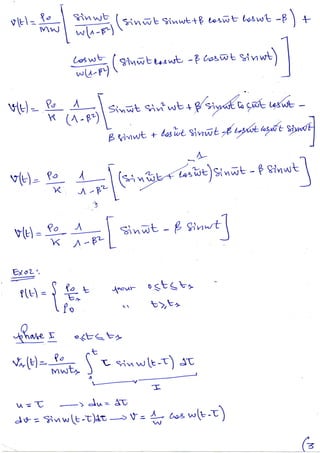 v(t) = P₀/mw [ Sinwt/w(1-β²) (Sinw̄t Sinwt + β cosw̄t coswt - β) +
coswt/w(1-β²) (Sinw̄t coswt - β cosw̄t Sinwt) ]
v(t) = P₀/K 1/(1-β²) [ Sinw̄t Sin²wt + β Sinwt cosw̄t coswt -
β Sinwt + cos²wt Sinw̄t - β coswt cosw̄t Sinwt ]
1
v(t) = P₀/K 1/1-β² [ (Sin²wt + cos²wt) Sinw̄t - β Sinwt ]
v(t) = P₀/K 1/1-β² [ Sinw̄t - β Sinwt ]
Exo2:
P(t) = { P₀/t₁ t pour 0≤t≤t₁
P₀ " t≥t₁
phase I 0≤t≤t₁
V₁(t) = P₀/mwt₁ ∫₀ᵗ τ sinw(t-τ) dτ
I
u = τ → du = dτ
dv = Sinw(t-τ)dτ → v = 1/w cosw(t-τ)
(3